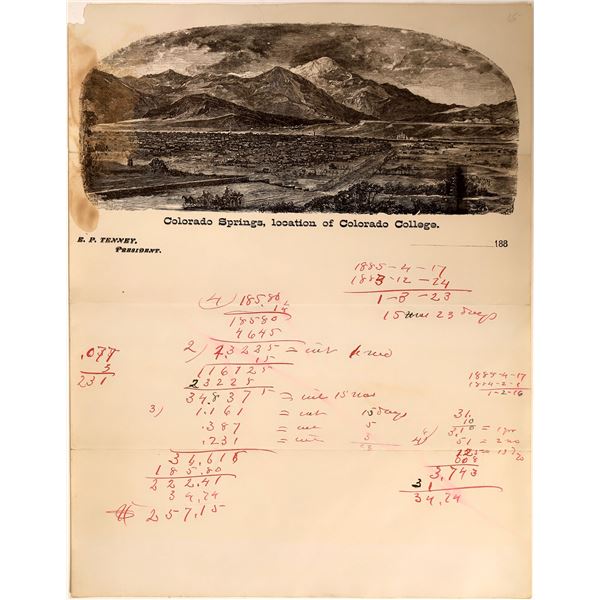 Colorado Springs, location of Colorado College.
E. P. TENNEY,
PRESIDENT.
188
1885-4-17
1883-12-24
1-3-23
15 mos 23 days
4) 185.80
18580
4645
2) 23235 = int 1 mo
15
116125
23225
34.8375 = int 15 mos
3) 1.161 = int 15 days
.387 = int 5
.231 = int 3
36,616
185.80
222.41
34,74
257,15
.077
3
231
1885-4-17
1-2-16
31.
10
3,10 = 1 yr
51 = 2 mo
= 15 dy
008
3,743
31
34,74